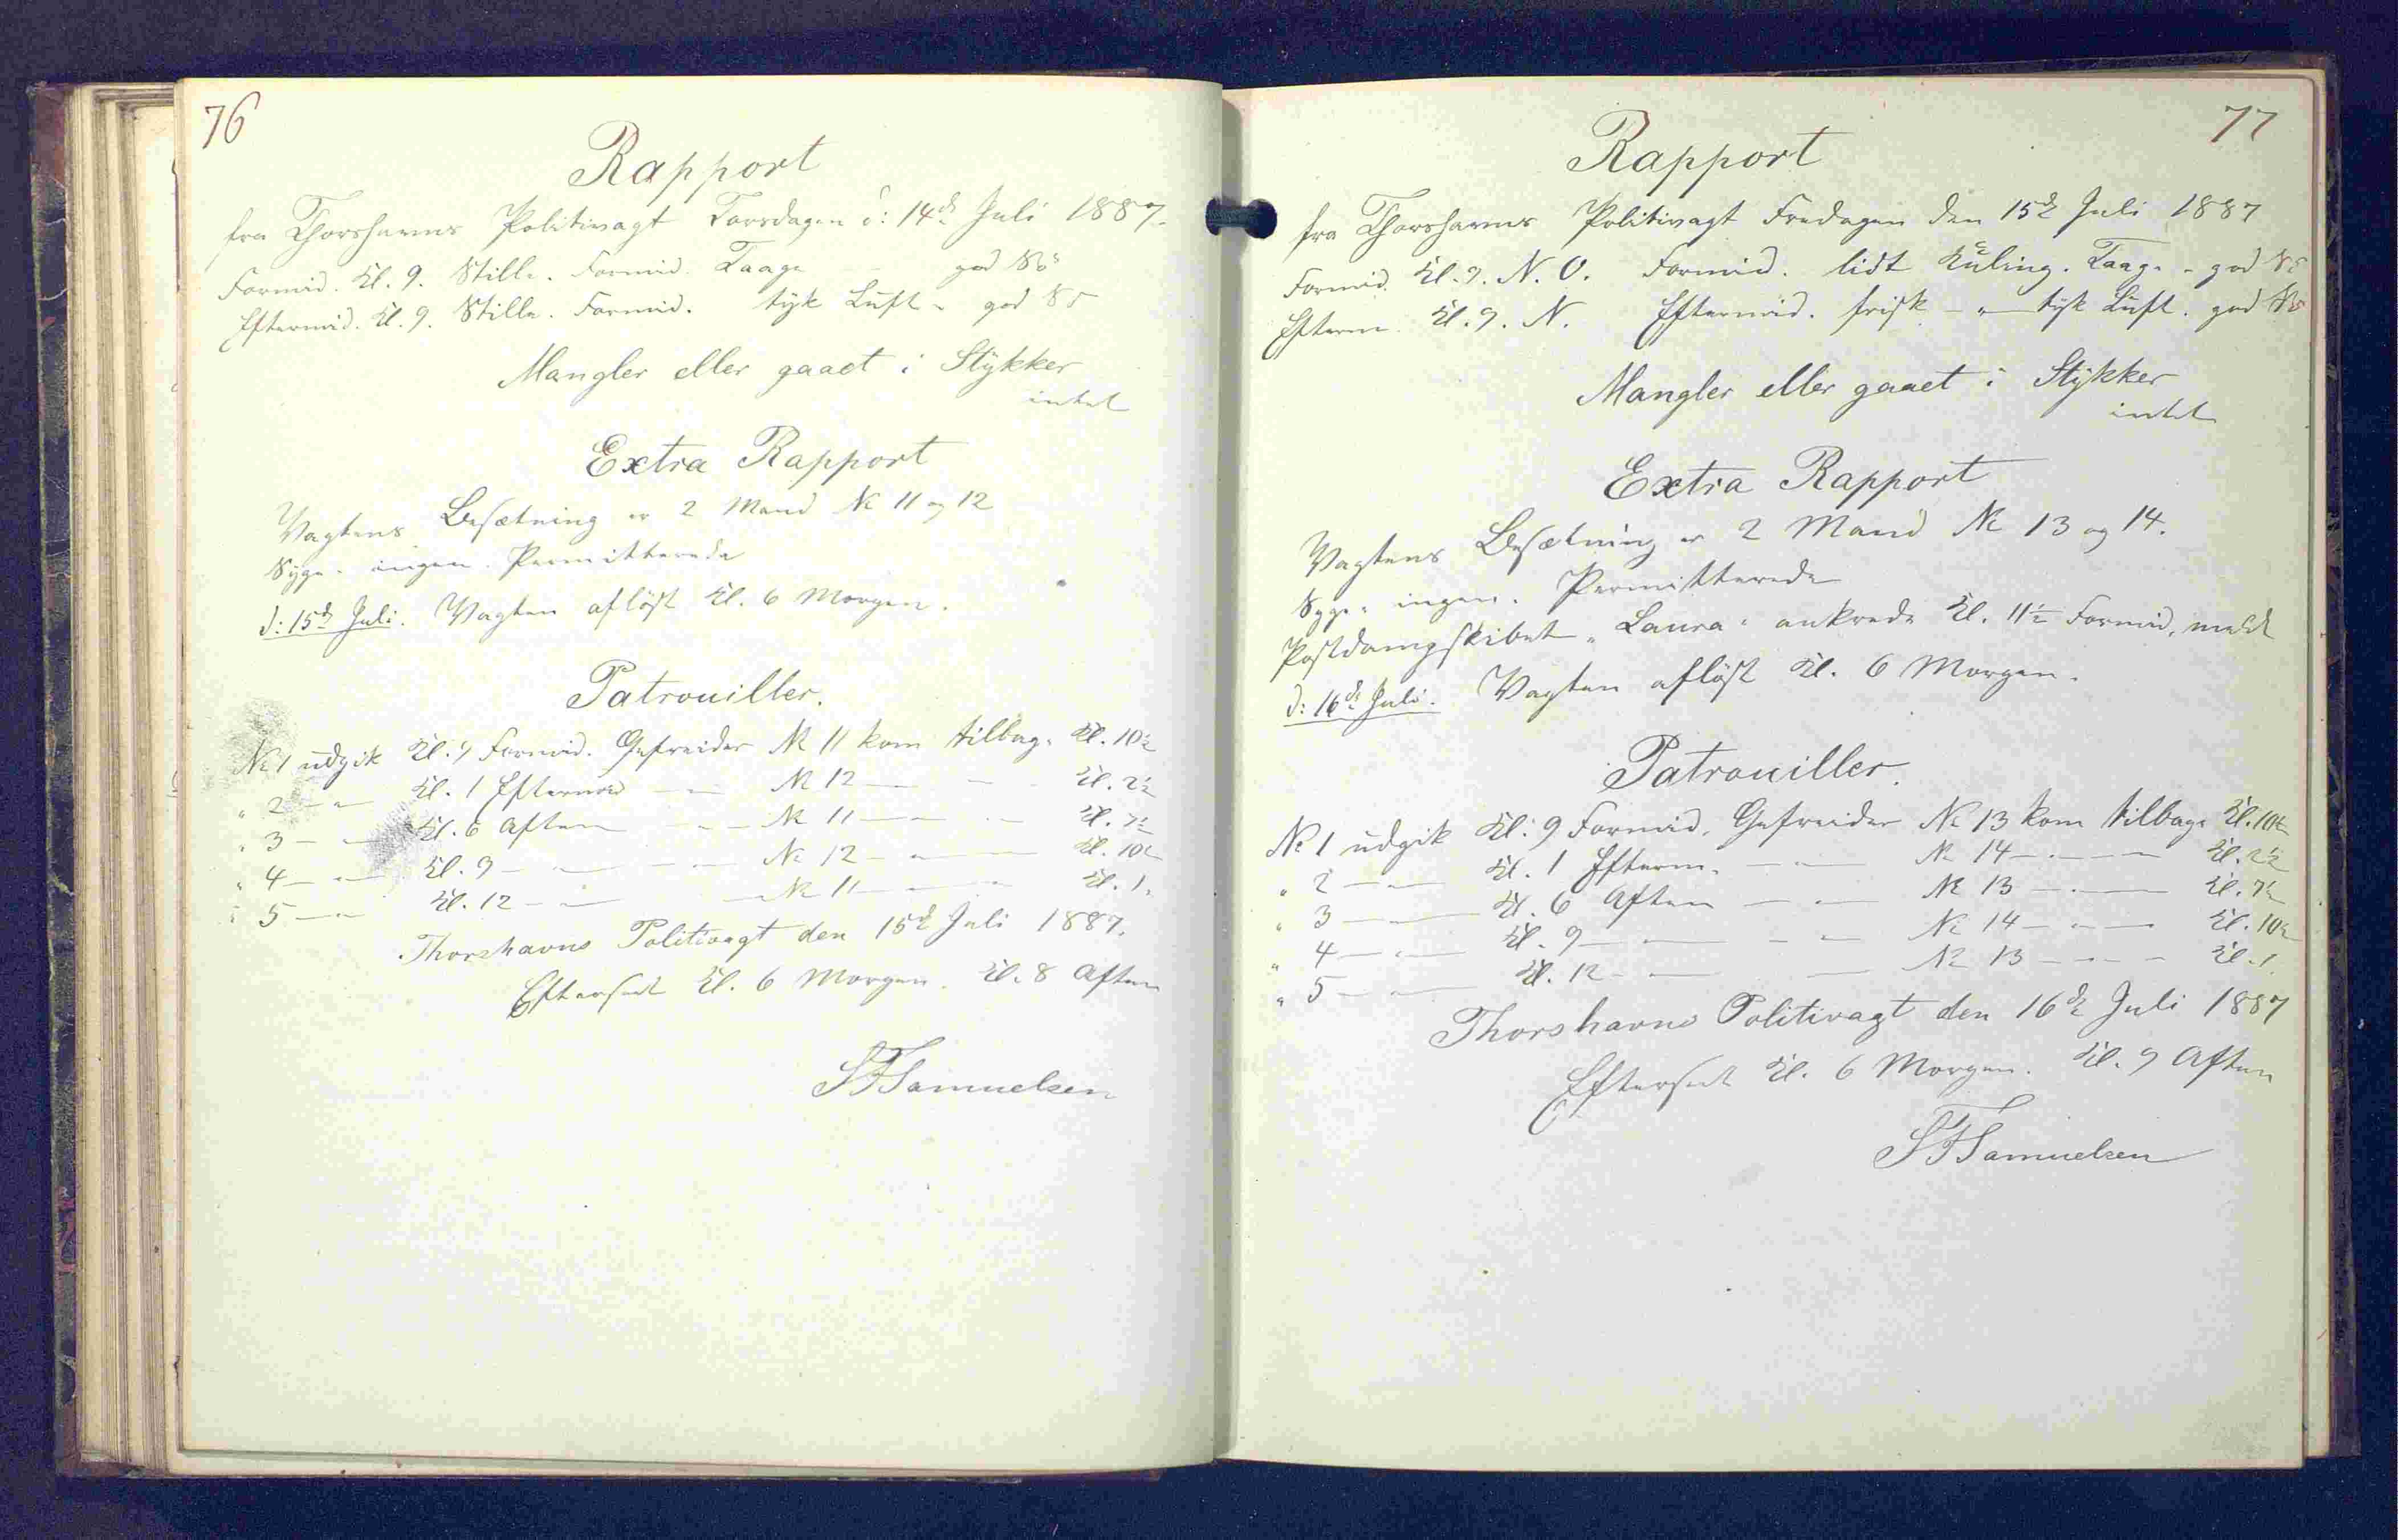 76
Rapport
fra Thorshavns Politivagt Torsdagen d: 14de Juli 1887.
Formid. Kl. 9. Stille. Formid. Taage god Sö
Eftermid. Kl. 9. Stille. Formid. tyk Luft - god Sö
Mangler eller gaaet i Stykker
intet
Extra Rapport
Vagtens Besætning er 2 Mand No 11 og 12
Syge - ingen. Permitterede
d: 15de Juli. Vagten aflöst Kl. 6 Morgen.
Patrouiller.
No 1 udgik Kl. 9 Formid. Gefreider No 11 kom tilbage Kl. 10½
" 2 — " — Kl. 1 Eftermid — " — No 12 — " — Kl. 2½
" 3 — " — Kl. 6 Aften — " — No 11 — " — Kl. 7½
" 4 — " — Kl. 9 — " — No 12 — " — Kl. 10½
" 5 — " — Kl. 12 — " — No 11 — " — Kl. 1.
Thorshavns Politivagt den 15de Juli 1887.
Efterseet Kl. 6 Morgen. Kl. 8 Aften
SFSamuelsen
77
Rapport
fra Thorshavns Politivagt Fredagen den 15de Juli 1887
Formid. Kl. 9. N. O. Formid. lidt Kuling. Taage - god Sö
Efterm. Kl. 9. N. Eftermid. frisk — " — tyk Luft. god Sö
Mangler eller gaaet i Stykker
intet
Extra Rapport
Vagtens Besætning er 2 Mand No 13 og 14.
Syge - ingen. Permitterede
Postdampskibet "Laura" ankrede Kl. 11½ Formid. meldt
d: 16de Juli. Vagten aflöst Kl. 6 Morgen.
Patrouiller.
No 1 udgik Kl. 9 Formid. Gefreider No 13 kom tilbage Kl. 10½
" 2 — " — Kl. 1 Efterm. — " — No 14 — " — Kl. 2½
" 3 — " — Kl. 6 Aften — " — No 13 — " — Kl. 7½
" 4 — " — Kl. 9 — " — No 14 — " — Kl. 10½
" 5 — " — Kl. 12 — " — No 13 — " — Kl. 1.
Thorshavns Politivagt den 16de Juli 1887
Efterseet Kl. 6 Morgen. Kl. 9 Aften
SFSamuelsen